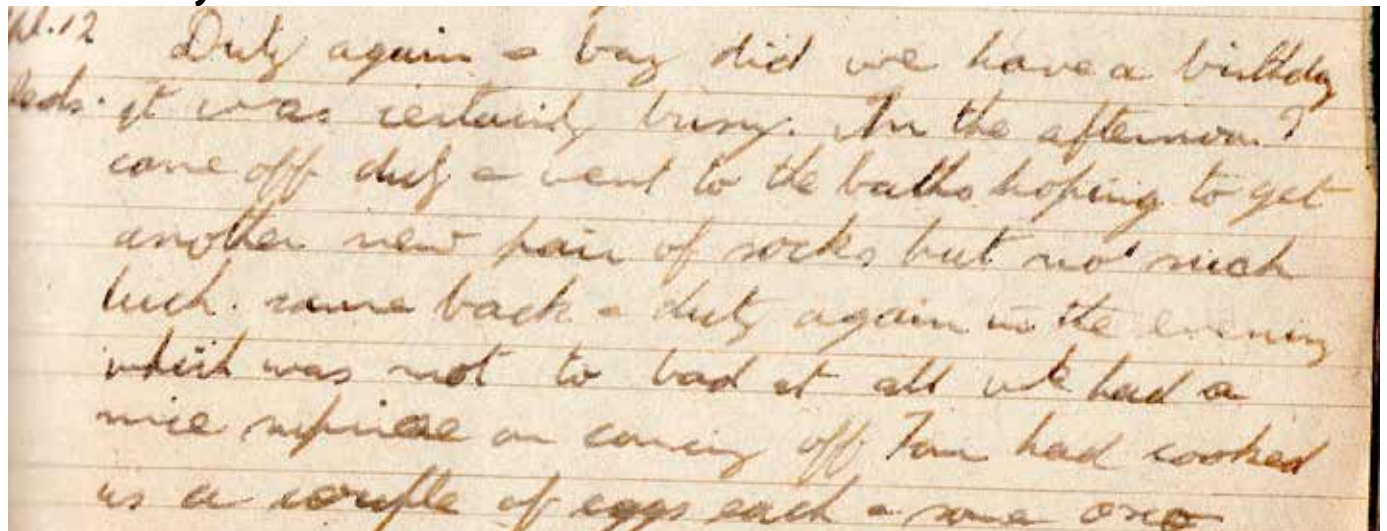 Duty again & boy did we have a birthday
Weds. it was certainly busy. In the afternoon I
came off duty & went to the baths hoping to get
another new pair of socks but no such
luck. came back & duty again in the evening
which was not to bad at all we had a
nice suprise on coming off Tom had cooked
us a couple of eggs each & some oxo